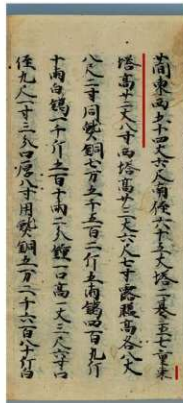 間東西五十四丈六尺南徑八十五丈塔二基並七重東
塔高廿三丈八寸西塔高廿三丈六尺七寸露盤高各八丈
八尺二寸用熟銅七万五千五百二斤五兩錫四百九斤
十兩白錫一千斤五百十兩二分鐘一口高一丈三尺六寸口
徑九尺一寸三分口厚八寸用熟銅五万二千六百八十斤白